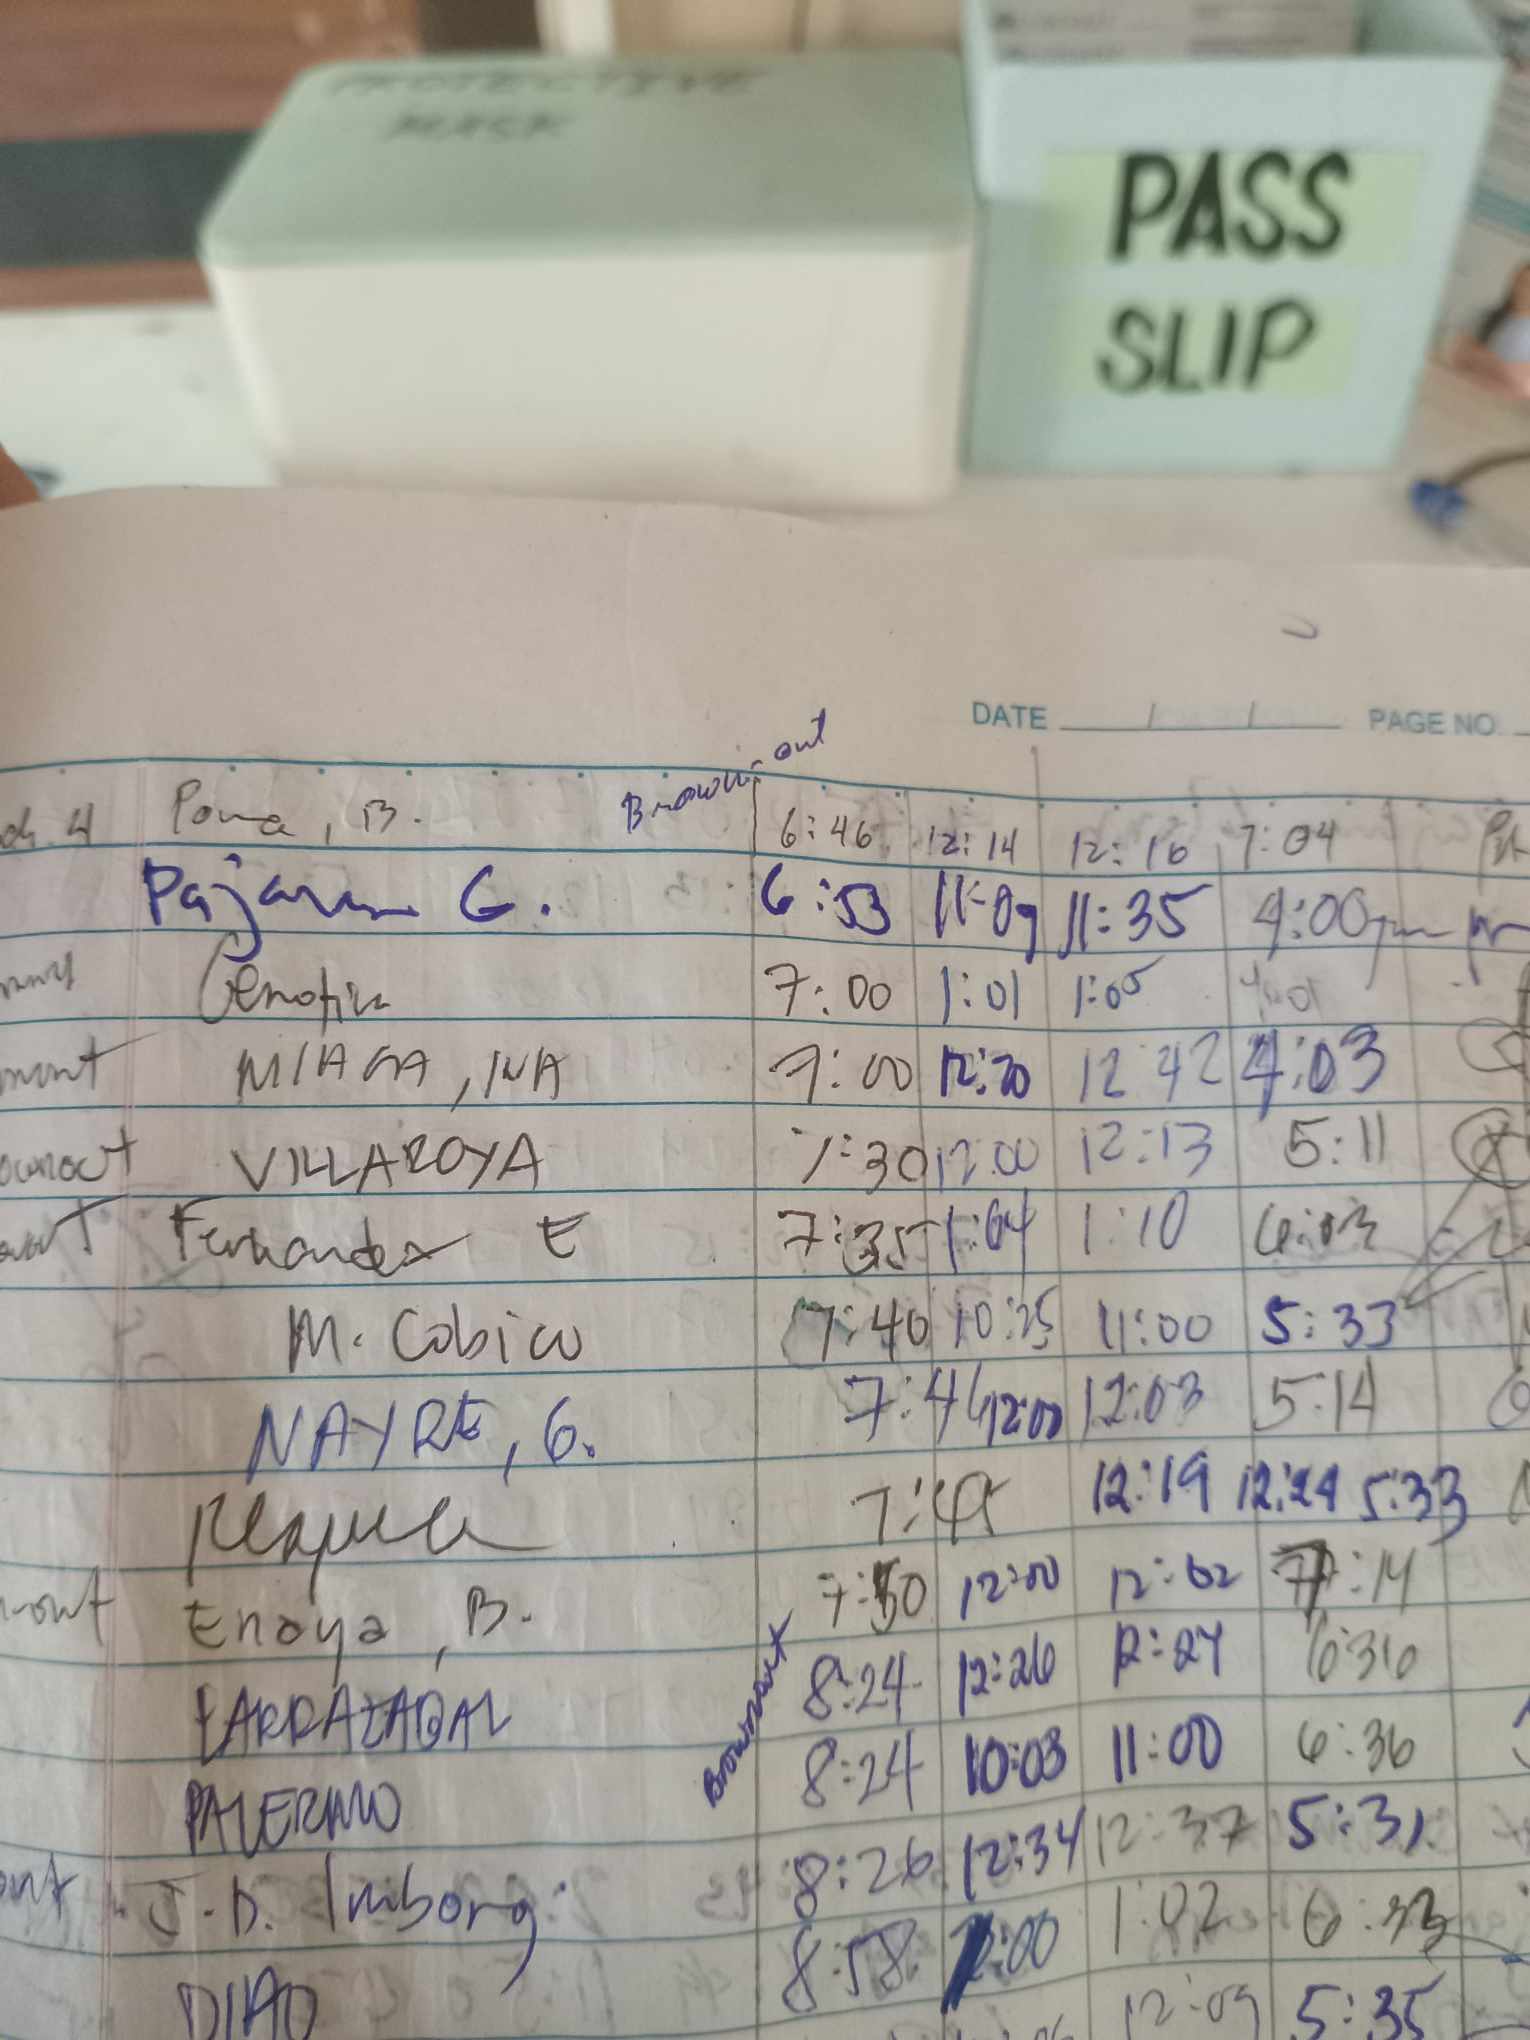 PROTECTIVE
MASK
PASS
SLIP
DATE PAGE NO.
Brown-out
4 Poma, B. 6:46 12:14 12:16 7:04
G. 6:53 11:09 11:35 4:00pm
7:00 1:01 1:05
MIAGA, INA 7:00 12:20 12:42 4:03
VILLAROYA 7:30 12:00 12:13 5:11
Fernandez E 7:35 1:04 1:10 6:03
M. Cobico 7:40 10:25 11:00 5:33
NAYRE, G. 7:46 12:00 12:03 5:14
7:45 12:19 12:24 5:33
Enoya, B. 7:50 12:00 12:02 7:14
LARRAZABAL 8:24 12:26 12:27 6:36
Brownout
PALERMO 8:24 10:03 11:00 6:36
J.D. Imborg 8:26 12:34 12:37 5:31
DIAO 8:58 :00 1:02 6:33
12:09 5:35